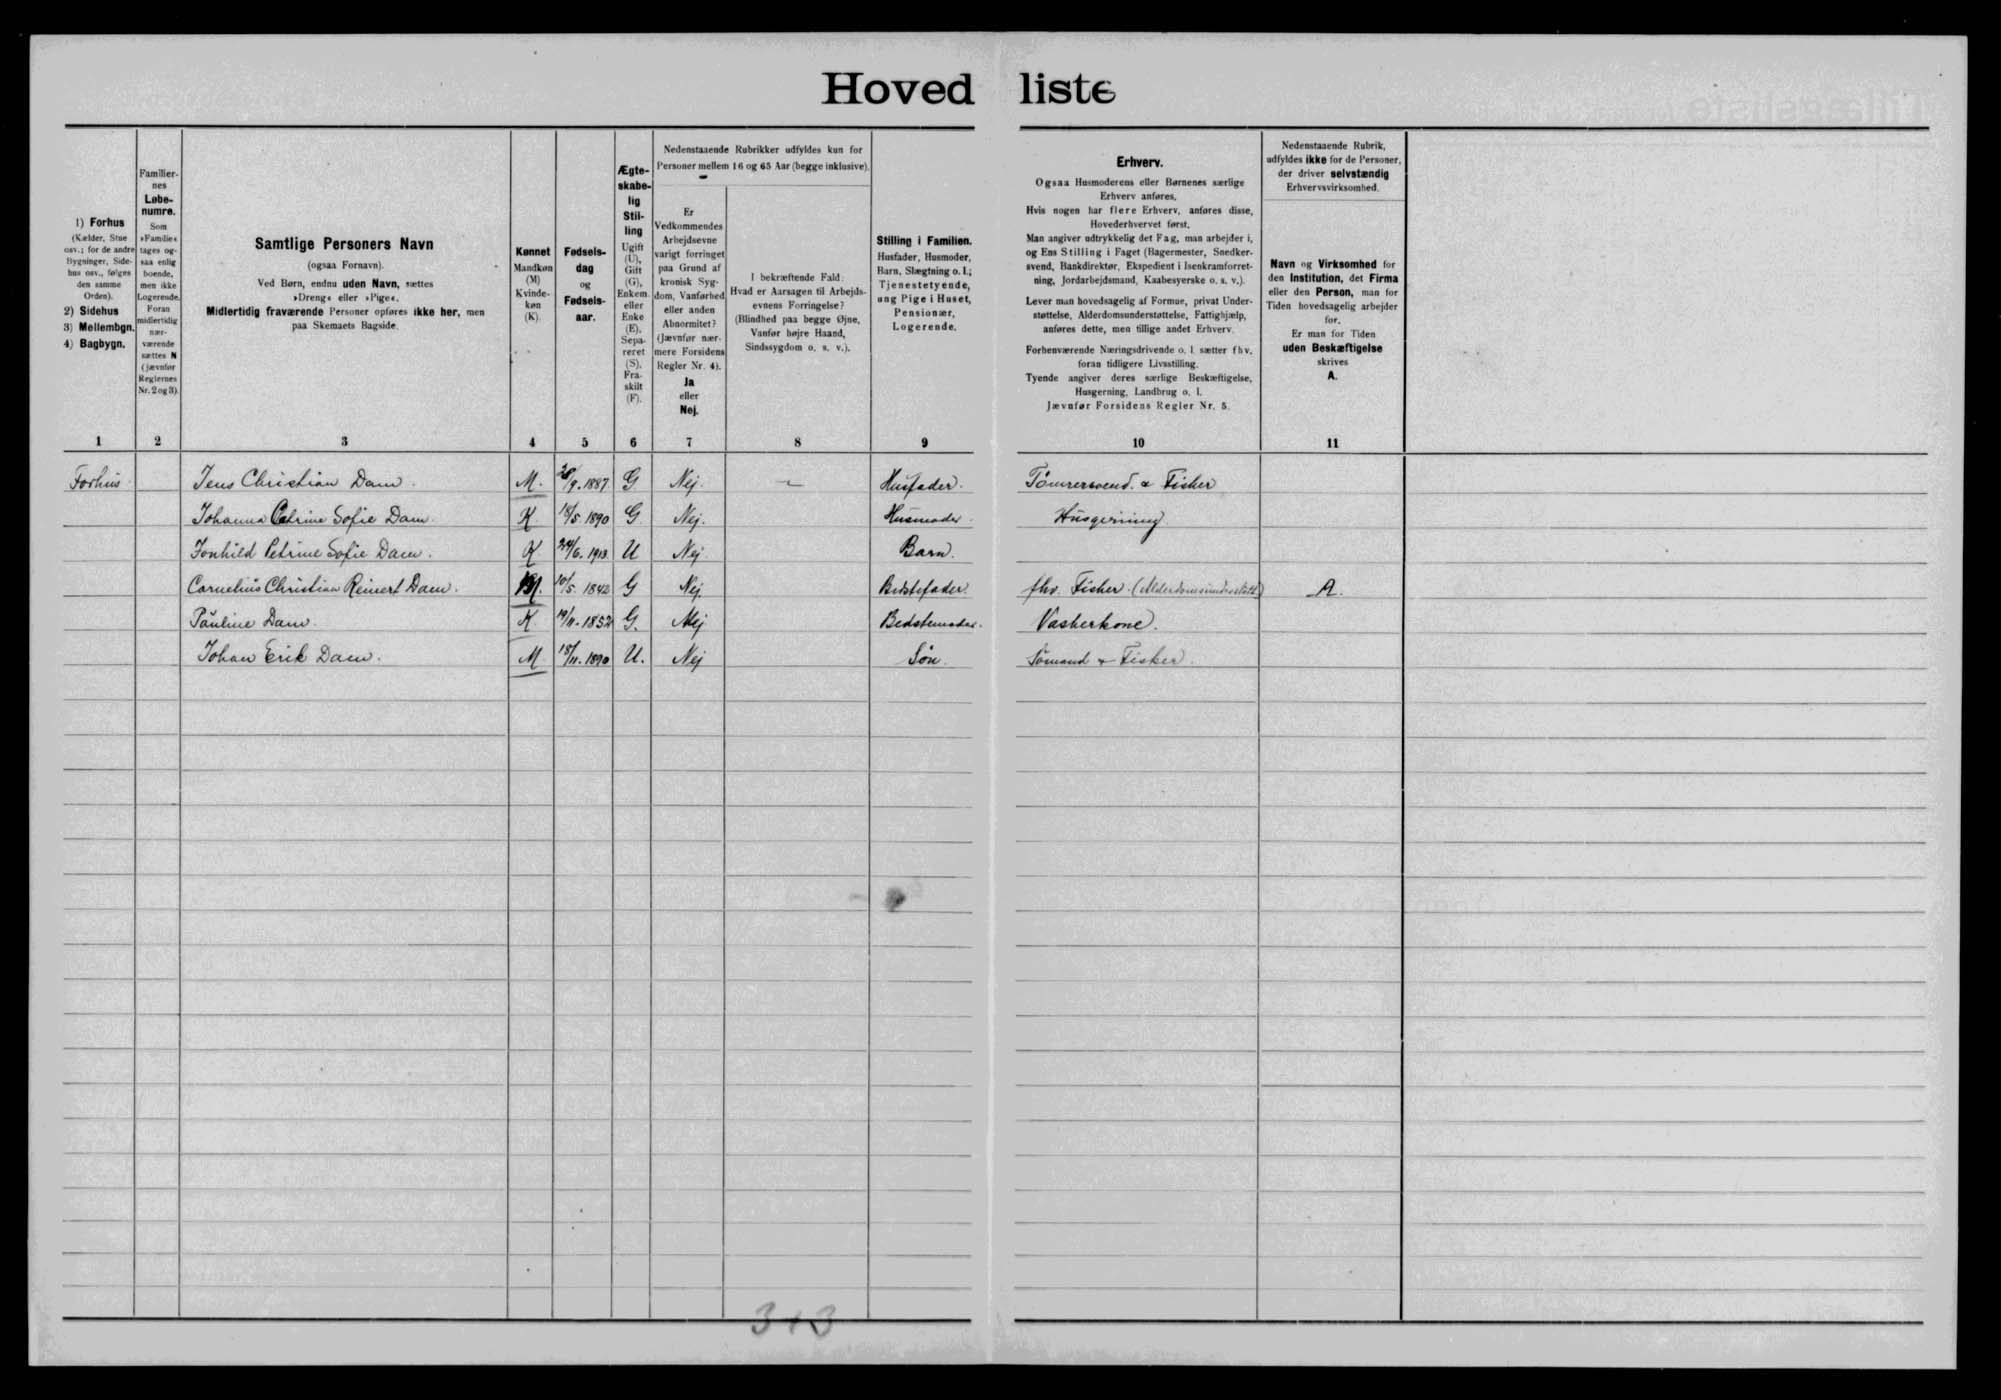 Hovedliste
1) Forhus
(Kælder, Stue
osv.; for de andre
Bygninger, Side-
hus osv., følges
den samme
Orden).
2) Sidehus
3) Mellembgn.
4) Bagbygn.
Familier-
nes
Løbe-
numre.
Som
»Familie«
tages og-
saa enlig
boende,
men ikke
Logerende.
Foran
midlertidig
nær-
værende
sættes N
(jævnfør
Reglernes
Nr. 2 og 3).
Samtlige Personers Navn
(ogsaa Fornavn).
Ved Børn, endnu uden Navn, sættes
»Dreng« eller »Pige«.
Midlertidig fraværende Personer opføres ikke her, men
paa Skemaets Bagside.
Kønnet
Mandkøn
(M)
Kvinde-
køn
(K).
Fødsels-
dag
og
Fødsels-
aar.
Ægte-
skabe-
lig
Stil-
ling
Ugift
(U),
Gift
(G),
Enkem.
eller
Enke
(E),
Sepa-
reret
(S),
Fra-
skilt
(F).
Nedenstaaende Rubrikker udfyldes kun for
Personer mellem 16 og 65 Aar (begge inklusive).
Er
Vedkommendes
Arbejdsevne
varigt forringet
paa Grund af
kronisk Syg-
dom, Vanførhed
eller anden
Abnormitet?
(Jævnfør nær-
mere Forsidens
Regler Nr. 4).
Ja
eller
Nej.
I bekræftende Fald:
Hvad er Aarsagen til Arbejds-
evnens Forringelse?
(Blindhed paa begge Øjne,
Vanfør højre Haand,
Sindssygdom o. s. v.).
Stilling i Familien.
Husfader, Husmoder,
Barn, Slægtning o. l.;
Tjenestetyende,
ung Pige i Huset,
Pensionær,
Logerende.
Erhverv.
Ogsaa Husmoderens eller Børnenes særlige
Erhverv anføres.
Hvis nogen har flere Erhverv, anføres disse,
Hovederhvervet først.
Man angiver udtrykkelig det Fag, man arbejder i,
og Ens Stilling i Faget (Bagermester, Snedker-
svend, Bankdirektør, Ekspedient i Isenkramforret-
ning, Jordarbejdsmand, Kaabesyerske o. s. v.).
Lever man hovedsagelig af Formue, privat Under-
støttelse, Alderdomsunderstøttelse, Fattighjælp,
anføres dette, men tillige andet Erhverv.
Forhenværende Næringsdrivende o. l. sætter fhv.
foran tidligere Livsstilling.
Tyende angiver deres særlige Beskæftigelse,
Husgerning, Landbrug o. l.
Jævnfør Forsidens Regler Nr. 5.
Nedenstaaende Rubrik,
udfyldes ikke for de Personer,
der driver selvstændig
Erhvervsvirksomhed.
Navn og Virksomhed for
den Institution, det Firma
eller den Person, man for
Tiden hovedsagelig arbejder
for.
Er man for Tiden
uden Beskæftigelse
skrives
A.
1 2 3 4 5 6 7 8 9 10 11
Forhus. Jens Christian Dam. M. 28/9. 1887 G Nej. — Husfader. Tömrersvend. & Fisker
Johanna Petrine Sofie Dam. K 18/5. 1890 G. Nej. Husmoder. Husgerning
Jonhild Petrine Sofie Dam. K 24/6. 1913. U Nej. Barn.
Cornelius Christian Reinert Dam. M. 10/5. 1842 G Nej. Bedstefader. fhv. Fisker. (Alderdomsunderstött) A.
Pauline Dam. K 19/11. 1852 G. Nej Bedstemoder. Vaskerkone.
Johan Erik Dam. M 18/11. 1890 U. Nej Sön. Sömand & Fisker.
3+3